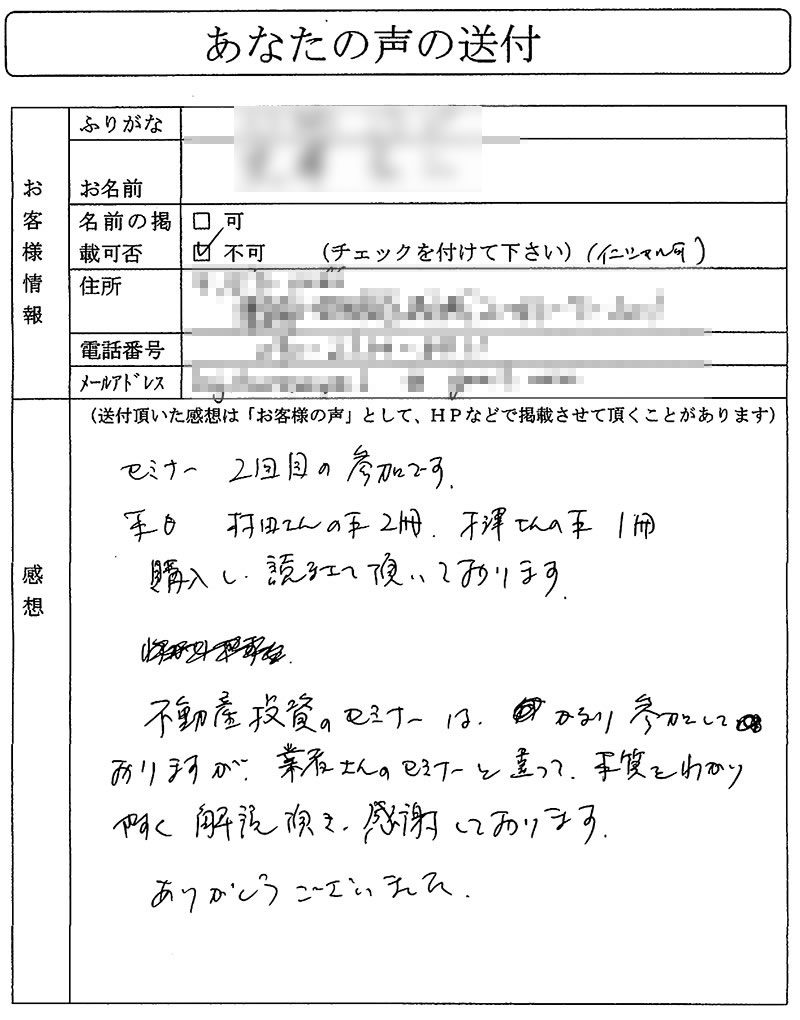 あなたの声の送付
お客様情報
ふりがな
お名前
名前の掲載可否
□ 可
☑ 不可 (チェックを付けて下さい) (イニシャル可)
住所
電話番号
メールアドレス
感想
(送付頂いた感想は「お客様の声」として、HPなどで掲載させて頂くことがあります)
セミナー 2回目の参加です。
村田さんの本2冊、 さんの本 1冊
購入し、読ませて頂いております。
不動産投資のセミナーは、かなり参加して
おりますが、業者さんのセミナーと違って、本質をわかり
やすく解説頂き、感謝しております。
ありがとうございました。